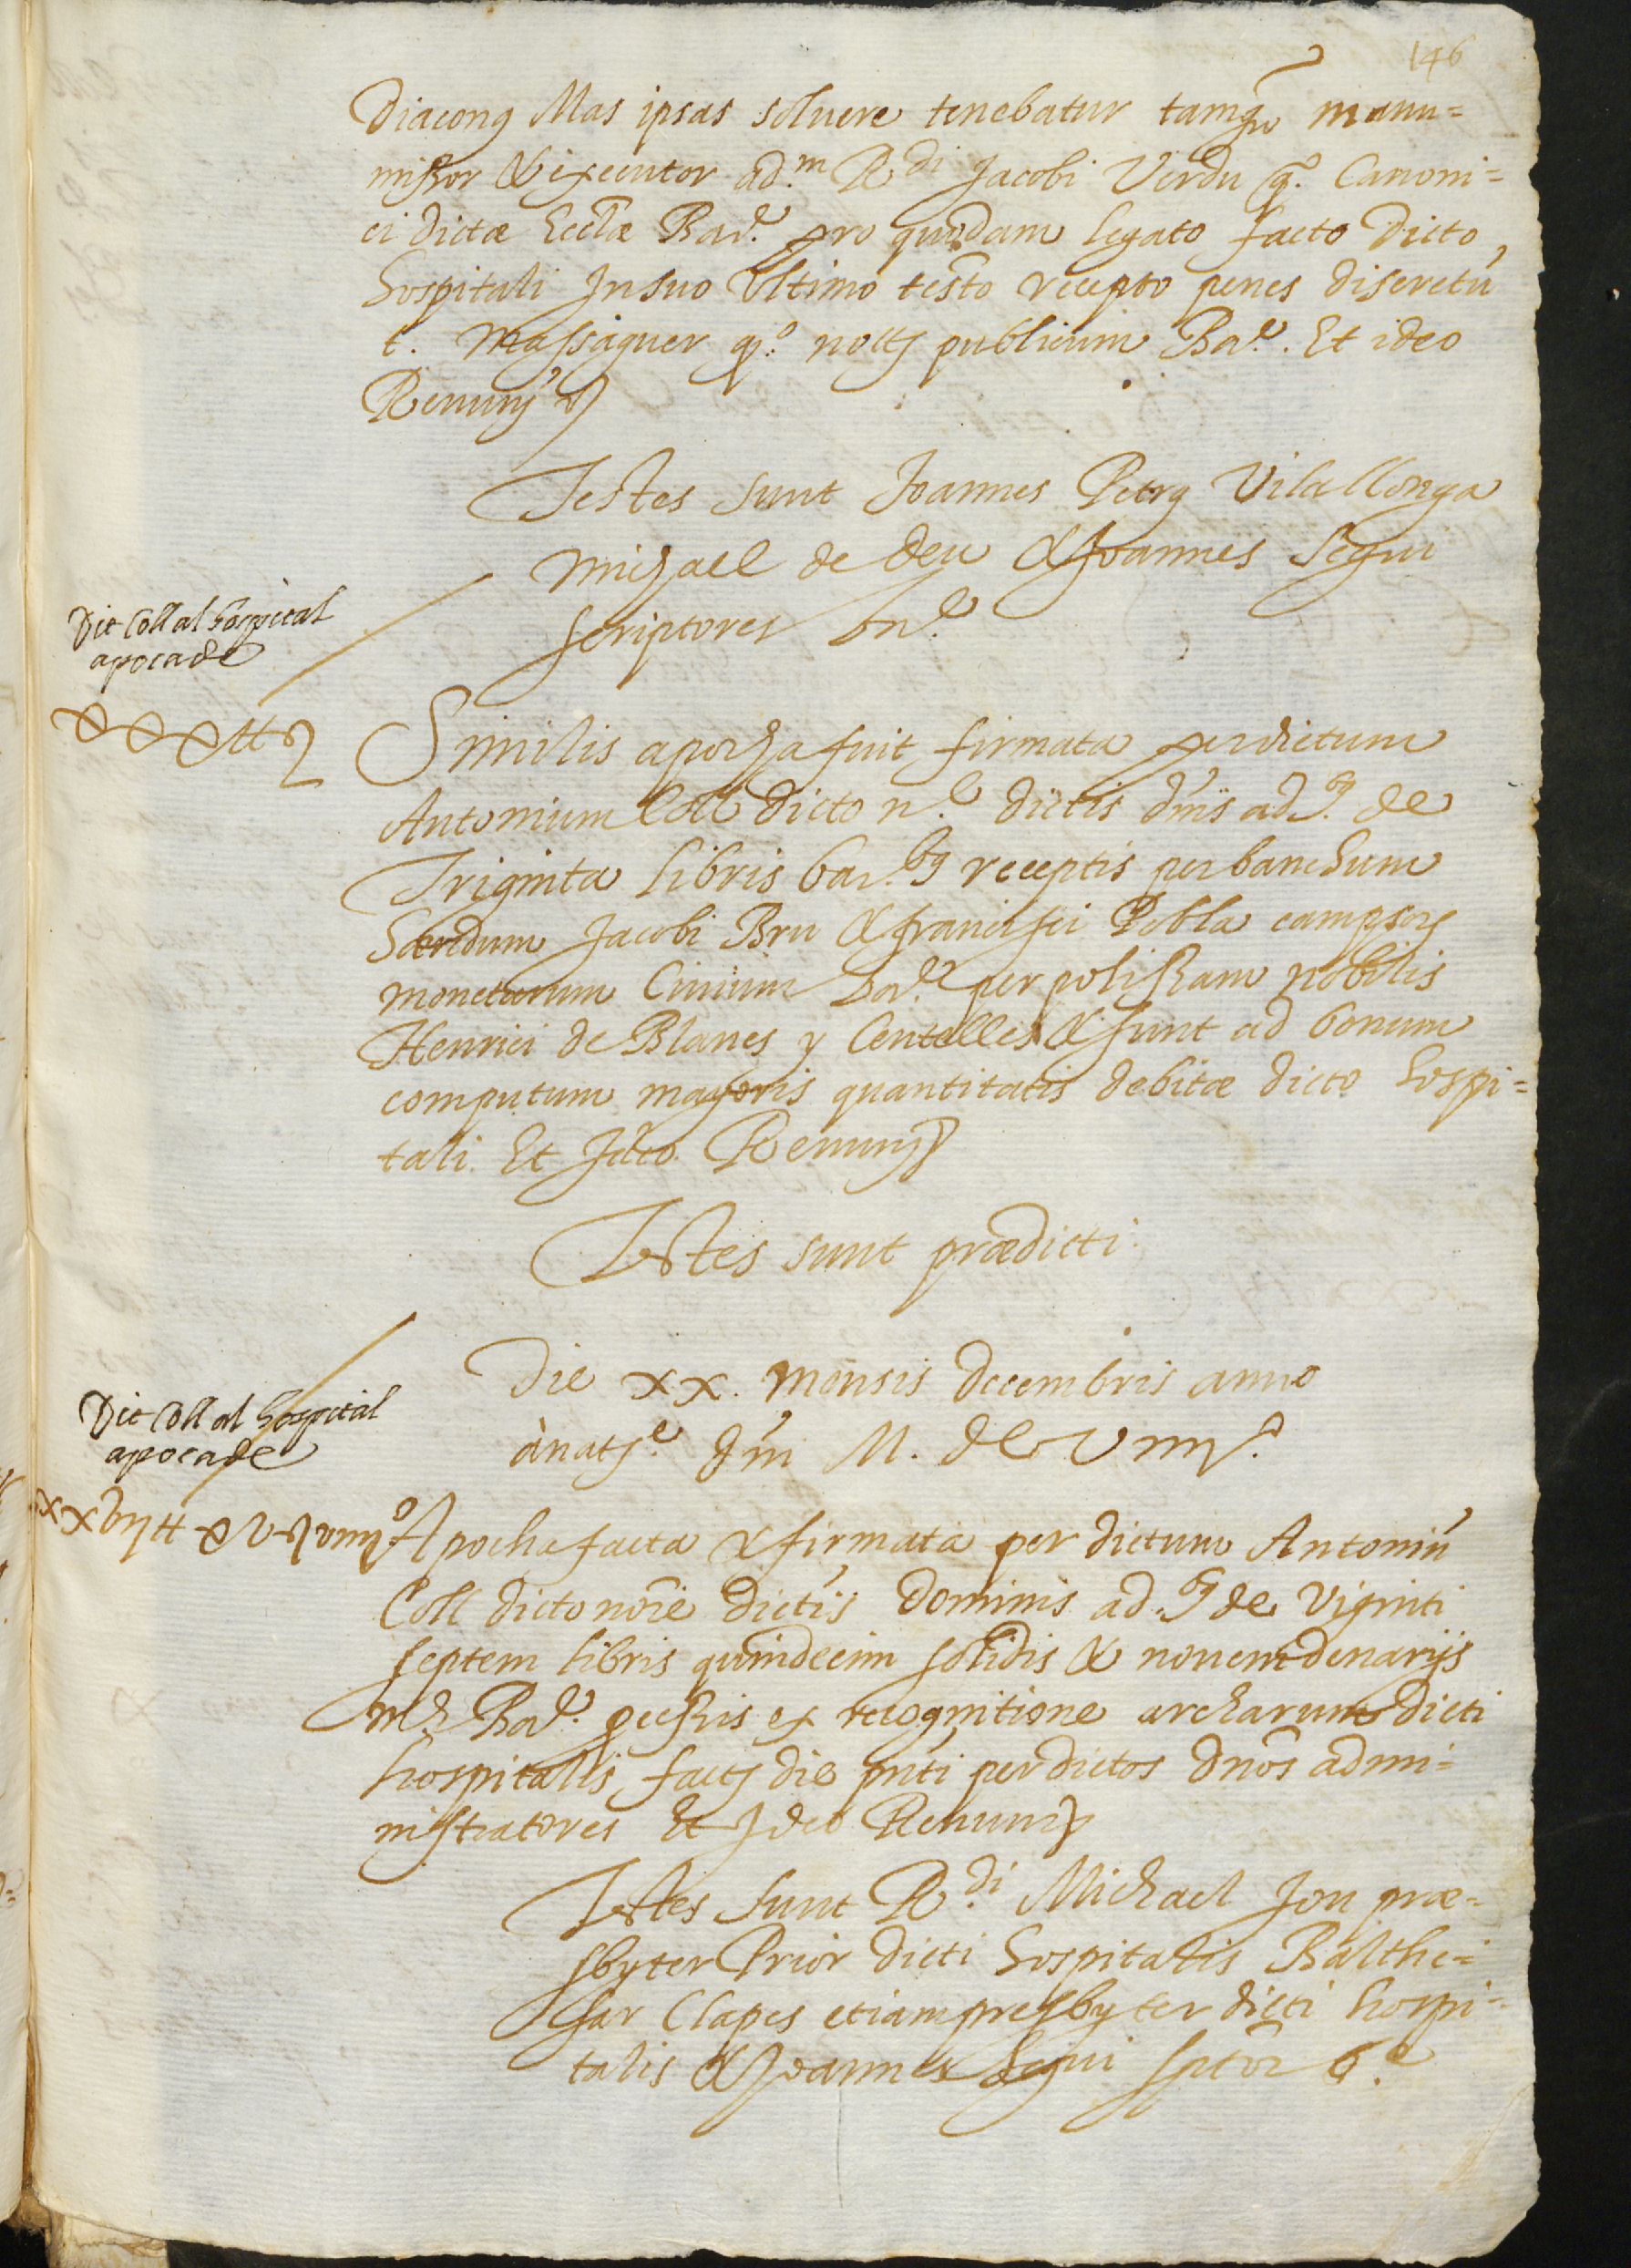 146
Diacong Mas ipsas soluere tenebatur tamq̃ manu=
missor & executor ad.m R.di Jacobi Verdu q.º Canoni=
ci dictæ Ecclæ Bar.e pro quodam legato facto dicto
hospitali In suo Ultimo testo recepto penes discretũ
t. Massaguer q.º nottʒ publicum Bar.e. Et ideo
Renuny
Testes sunt Joannes Petrg Vilallonga
Michael de deu & Joannes Segui
scriptores bn.e
Dit Coll al hospital
apoca de
xxx ll
Similis apocha fuit firmata per dictum
Antonium Coll dicto n.e dictis dñis ad.g de
Triginta libris bar.bg receptis per banchum
Jacobi Bru & francisci Pobla campsorʒ
monetarum Ciuium Bar.e per polissam nobilis
Henrici de Blanes y Centelles & sunt ad bonum
computum mayoris quantitatis debitæ dicto hospi=
tali. Et Ideo. Renuny
Testes sunt prædicti.
Die xx. mensis decembris anno
ànatʒ.e dñi M. de
Dit Coll al hospital
apoca de
xxvij ll xv viiij
Apocha facta & firmata per dictum Antoniũ
Coll dicto noĩe dictis Dominis ad.g de Viginti
septem libris quindecim solidis & novem denarijs
Bar.e ex recognitione archarum dicti
hospitalis factʒ die pñti per dictos dños admi=
nistratores Et Ideo Renuny
Testes sunt R.di Michael Jou præ=
sbyter Prior dicti hospitalis Balthe=
sar Clapes etiam presbyter dicti hospi=
talis & Joannes Segui sptor b.e